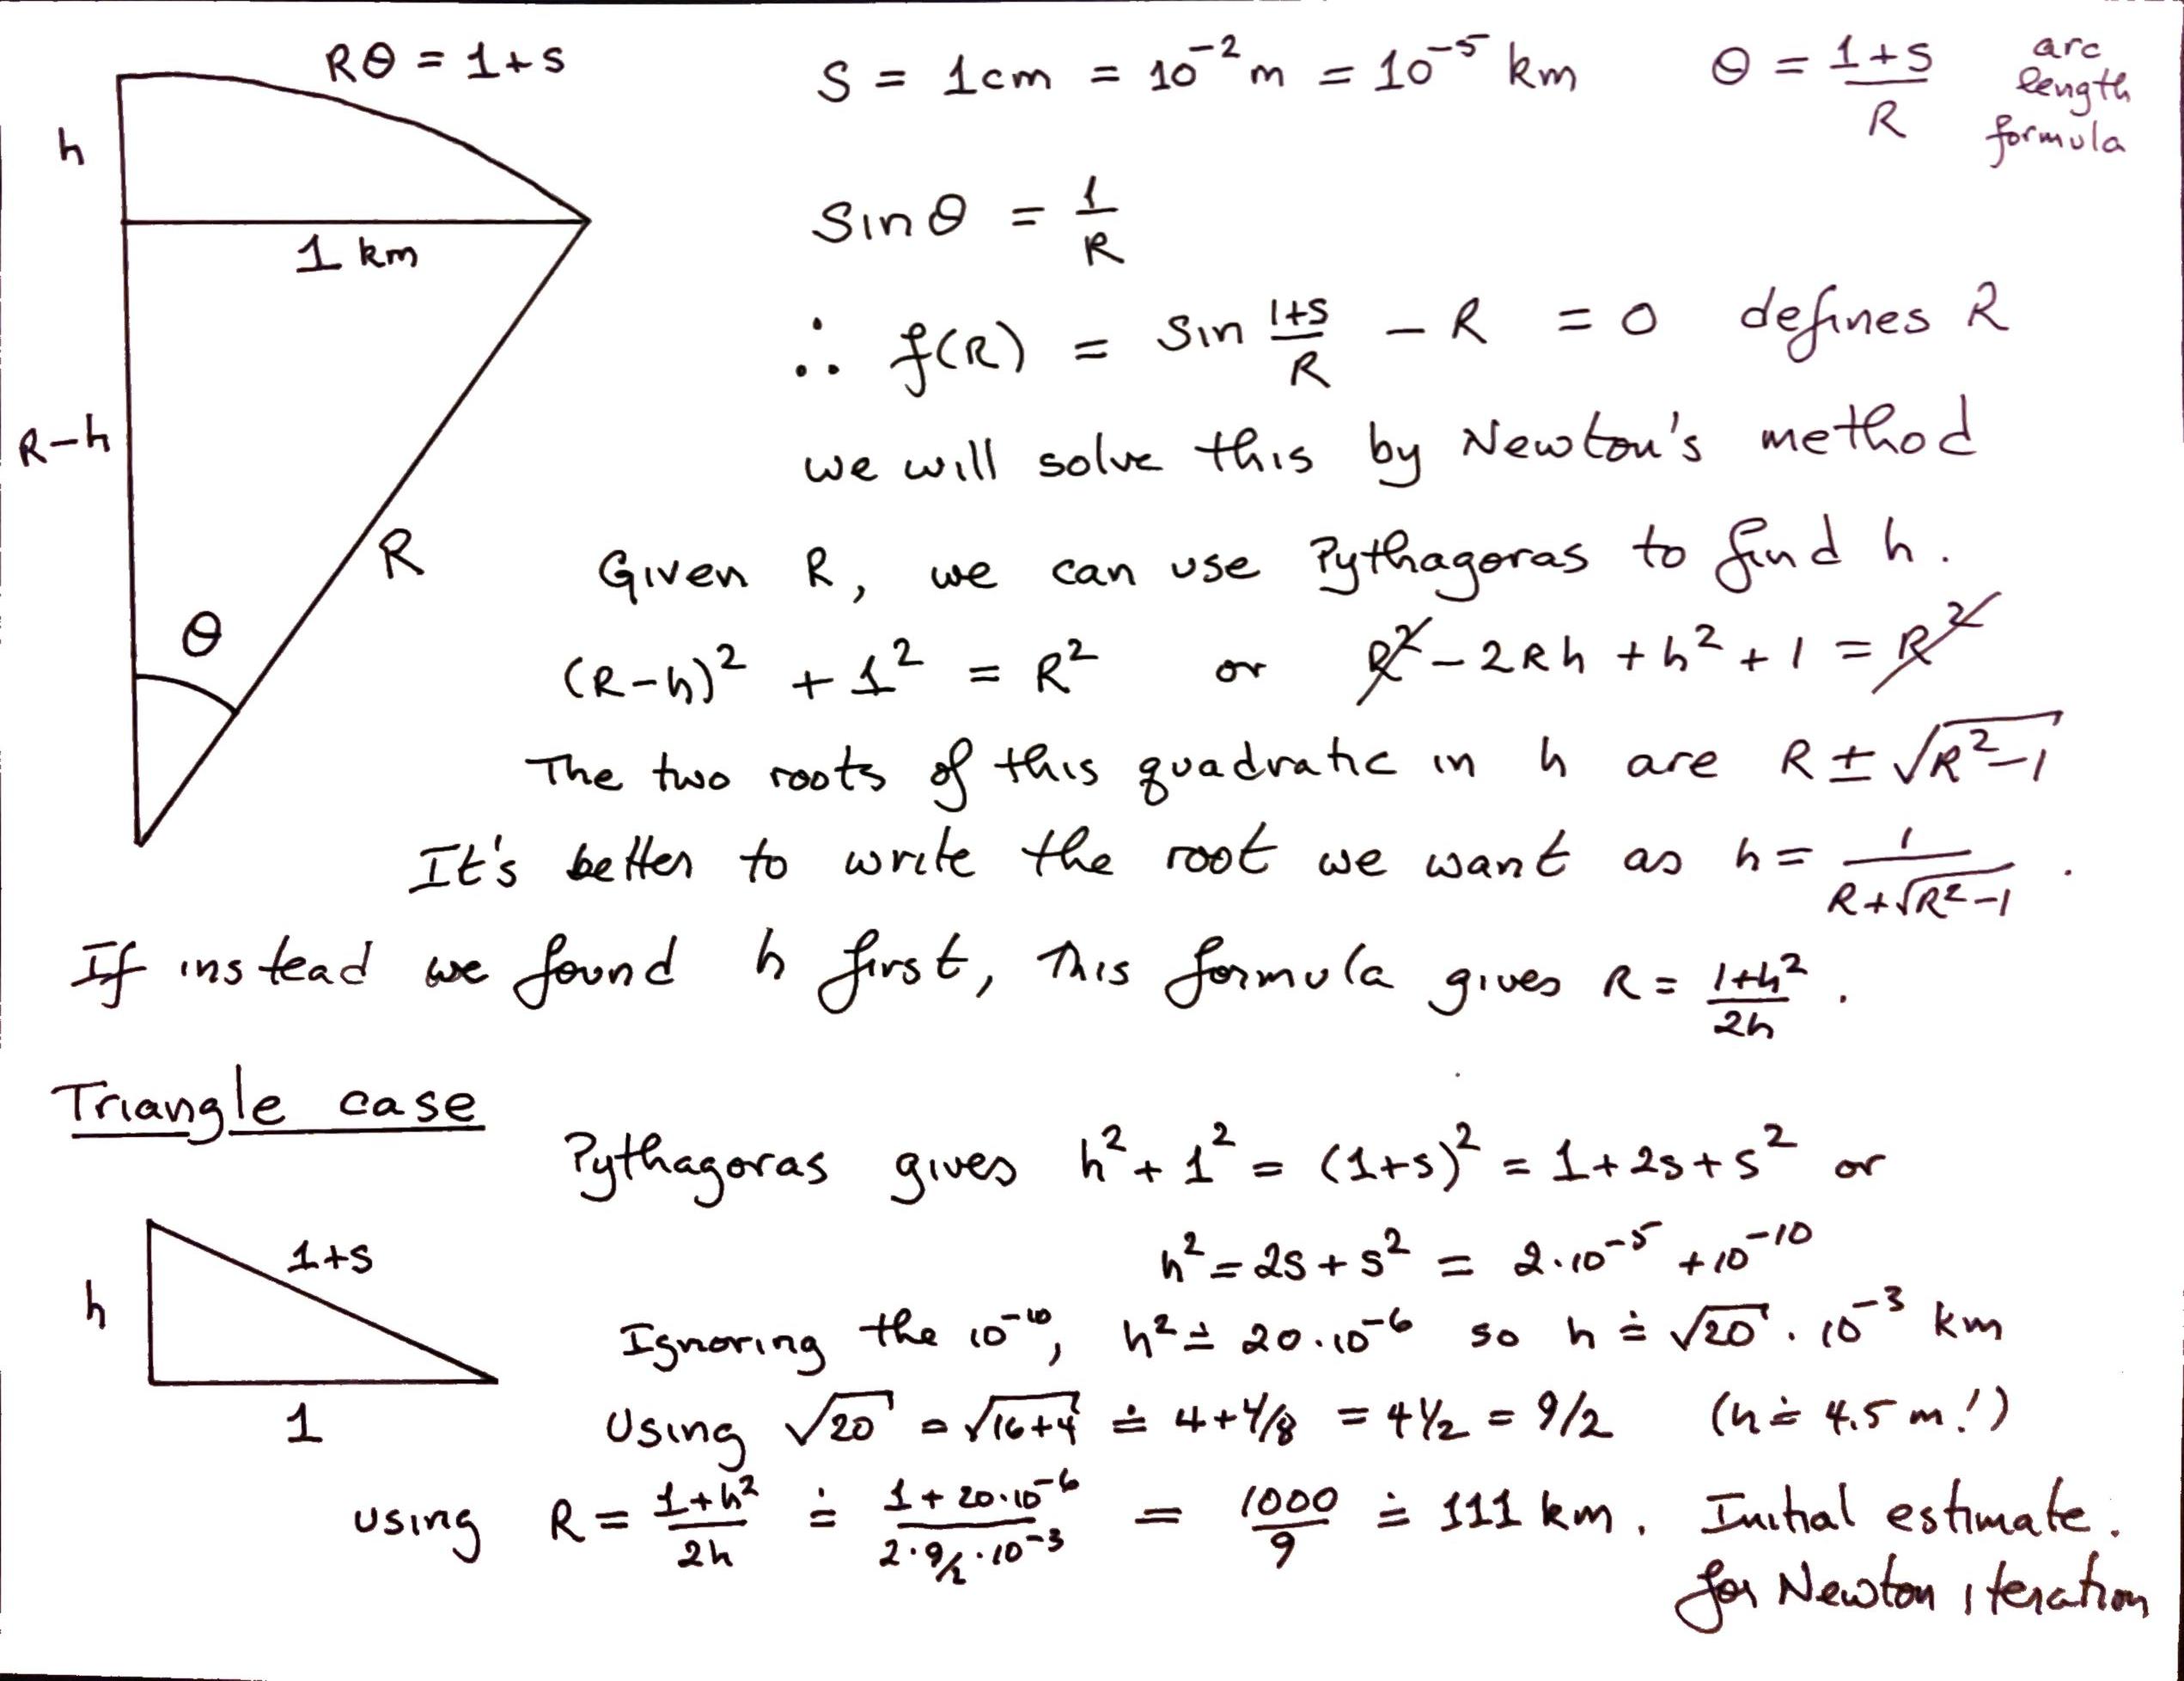 Rθ = 1+s
S = 1cm = 10⁻² m = 10⁻⁵ km
θ = (1+s)/R
arc
length
formula
h
Sin θ = 1/R
1 km
∴ f(R) = Sin (1+s)/R − R = 0 defines R
R−h
we will solve this by Newton's method
R
Given R, we can use Pythagoras to find h.
θ
(R−h)² + 1² = R² or R² − 2Rh + h² + 1 = R²
The two roots of this quadratic in h are R ± √(R²−1)
It's better to write the root we want as h = 1/(R+√(R²−1)).
If instead we found h first, this formula gives R = (1+h²)/2h.
Triangle case
Pythagoras gives h² + 1² = (1+s)² = 1 + 2s + s² or
1+s
h² = 2s + s² = 2·10⁻⁵ + 10⁻¹⁰
h
Ignoring the 10⁻¹⁰, h² ≐ 20·10⁻⁶ so h ≐ √20 · 10⁻³ km
1
Using √20 = √(16+4) ≐ 4+4/8 = 4½ = 9/2 (h ≐ 4.5 m!)
using R = (1+h²)/2h ≐ (1+20·10⁻⁶)/(2·9/2·10⁻³) = 1000/9 ≐ 111 km. Initial estimate.
for Newton iteration